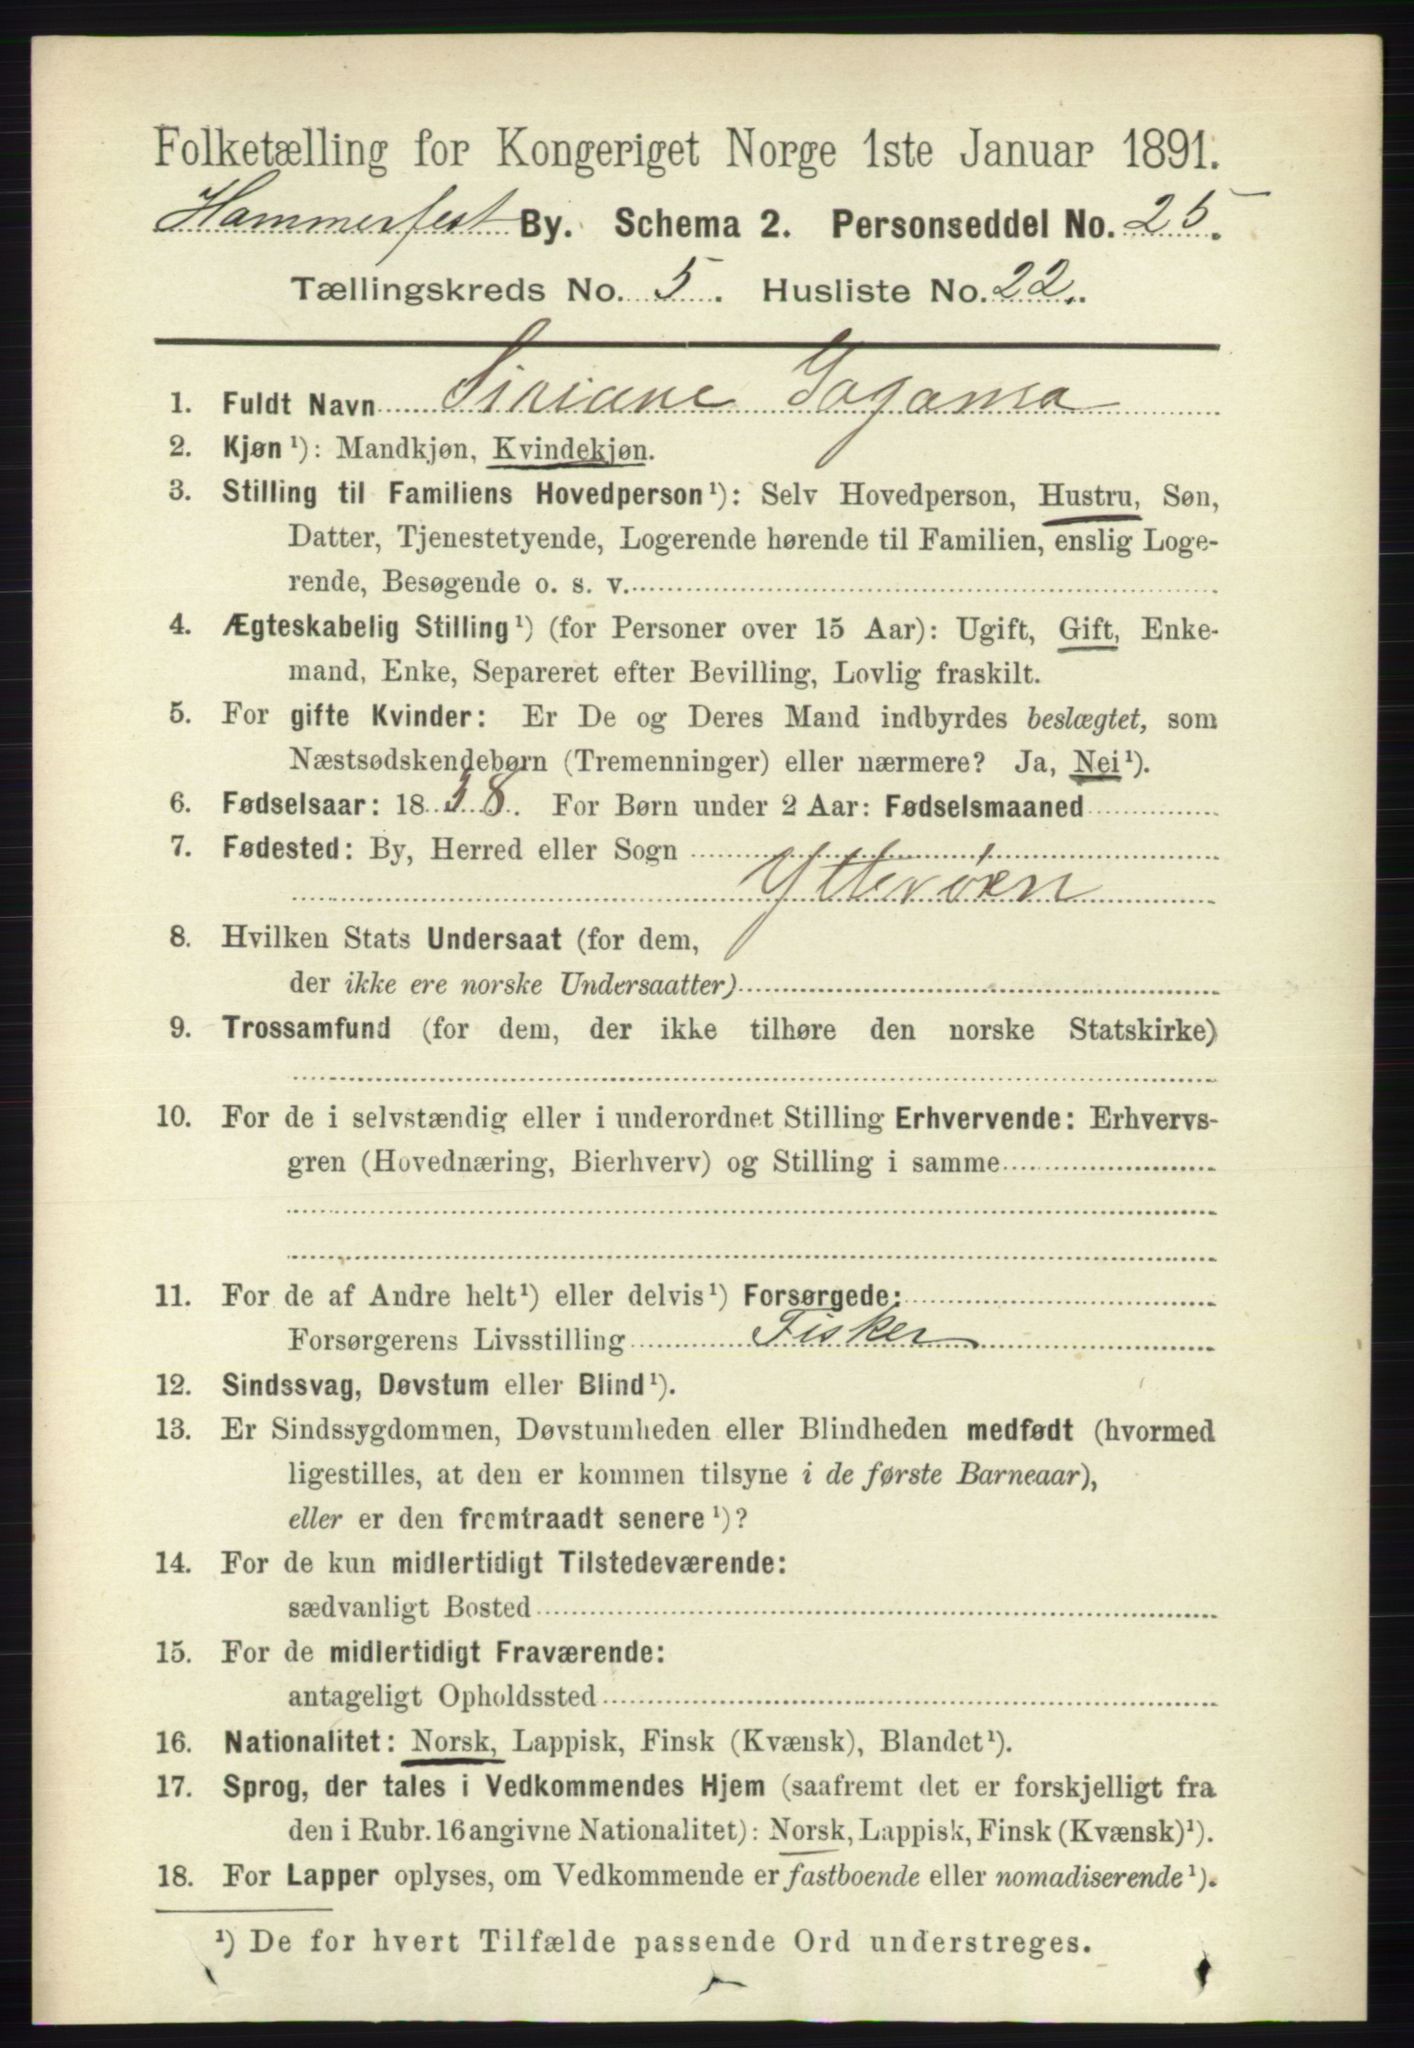 Folketælling for Kongeriget Norge 1ste Januar 1891.
Hammerfest By. Schema 2. Personseddel No. 25.
Tællingskreds No. 5. Husliste No. 22.
1. Fuldt Navn Siriane
2. Kjøn¹): Mandkjøn, Kvindekjøn.
3. Stilling til Familiens Hovedperson¹): Selv Hovedperson, Hustru, Søn,
Datter, Tjenestetyende, Logerende hørende til Familien, enslig Loge-
rende, Besøgende o. s. v.
4. Ægteskabelig Stilling¹) (for Personer over 15 Aar): Ugift, Gift, Enke-
mand, Enke, Separeret efter Bevilling, Lovlig fraskilt.
5. For gifte Kvinder: Er De og Deres Mand indbyrdes beslægtet, som
Næstsødskendebørn (Tremenninger) eller nærmere? Ja, Nei¹).
6. Fødselsaar: 1838. For Børn under 2 Aar: Fødselsmaaned
7. Fødested: By, Herred eller Sogn
Ytterøen
8. Hvilken Stats Undersaat (for dem,
der ikke ere norske Undersaatter)
9. Trossamfund (for dem, der ikke tilhøre den norske Statskirke)
10. For de i selvstændig eller i underordnet Stilling Erhvervende: Erhvervs-
gren (Hovednæring, Bierhverv) og Stilling i samme
11. For de af Andre helt¹) eller delvis¹) Forsørgede:
Forsørgerens Livsstilling Fisker
12. Sindssvag, Døvstum eller Blind¹).
13. Er Sindssygdommen, Døvstumheden eller Blindheden medfødt (hvormed
ligestilles, at den er kommen tilsyne i de første Barneaar),
eller er den fremtraadt senere¹)?
14. For de kun midlertidigt Tilstedeværende:
sædvanligt Bosted
15. For de midlertidigt Fraværende:
antageligt Opholdssted
16. Nationalitet: Norsk, Lappisk, Finsk (Kvænsk), Blandet¹).
17. Sprog, der tales i Vedkommendes Hjem (saafremt det er forskjelligt fra
den i Rubr. 16 angivne Nationalitet): Norsk, Lappisk, Finsk (Kvænsk)¹).
18. For Lapper oplyses, om Vedkommende er fastboende eller nomadiserende¹).
¹) De for hvert Tilfælde passende Ord understreges.